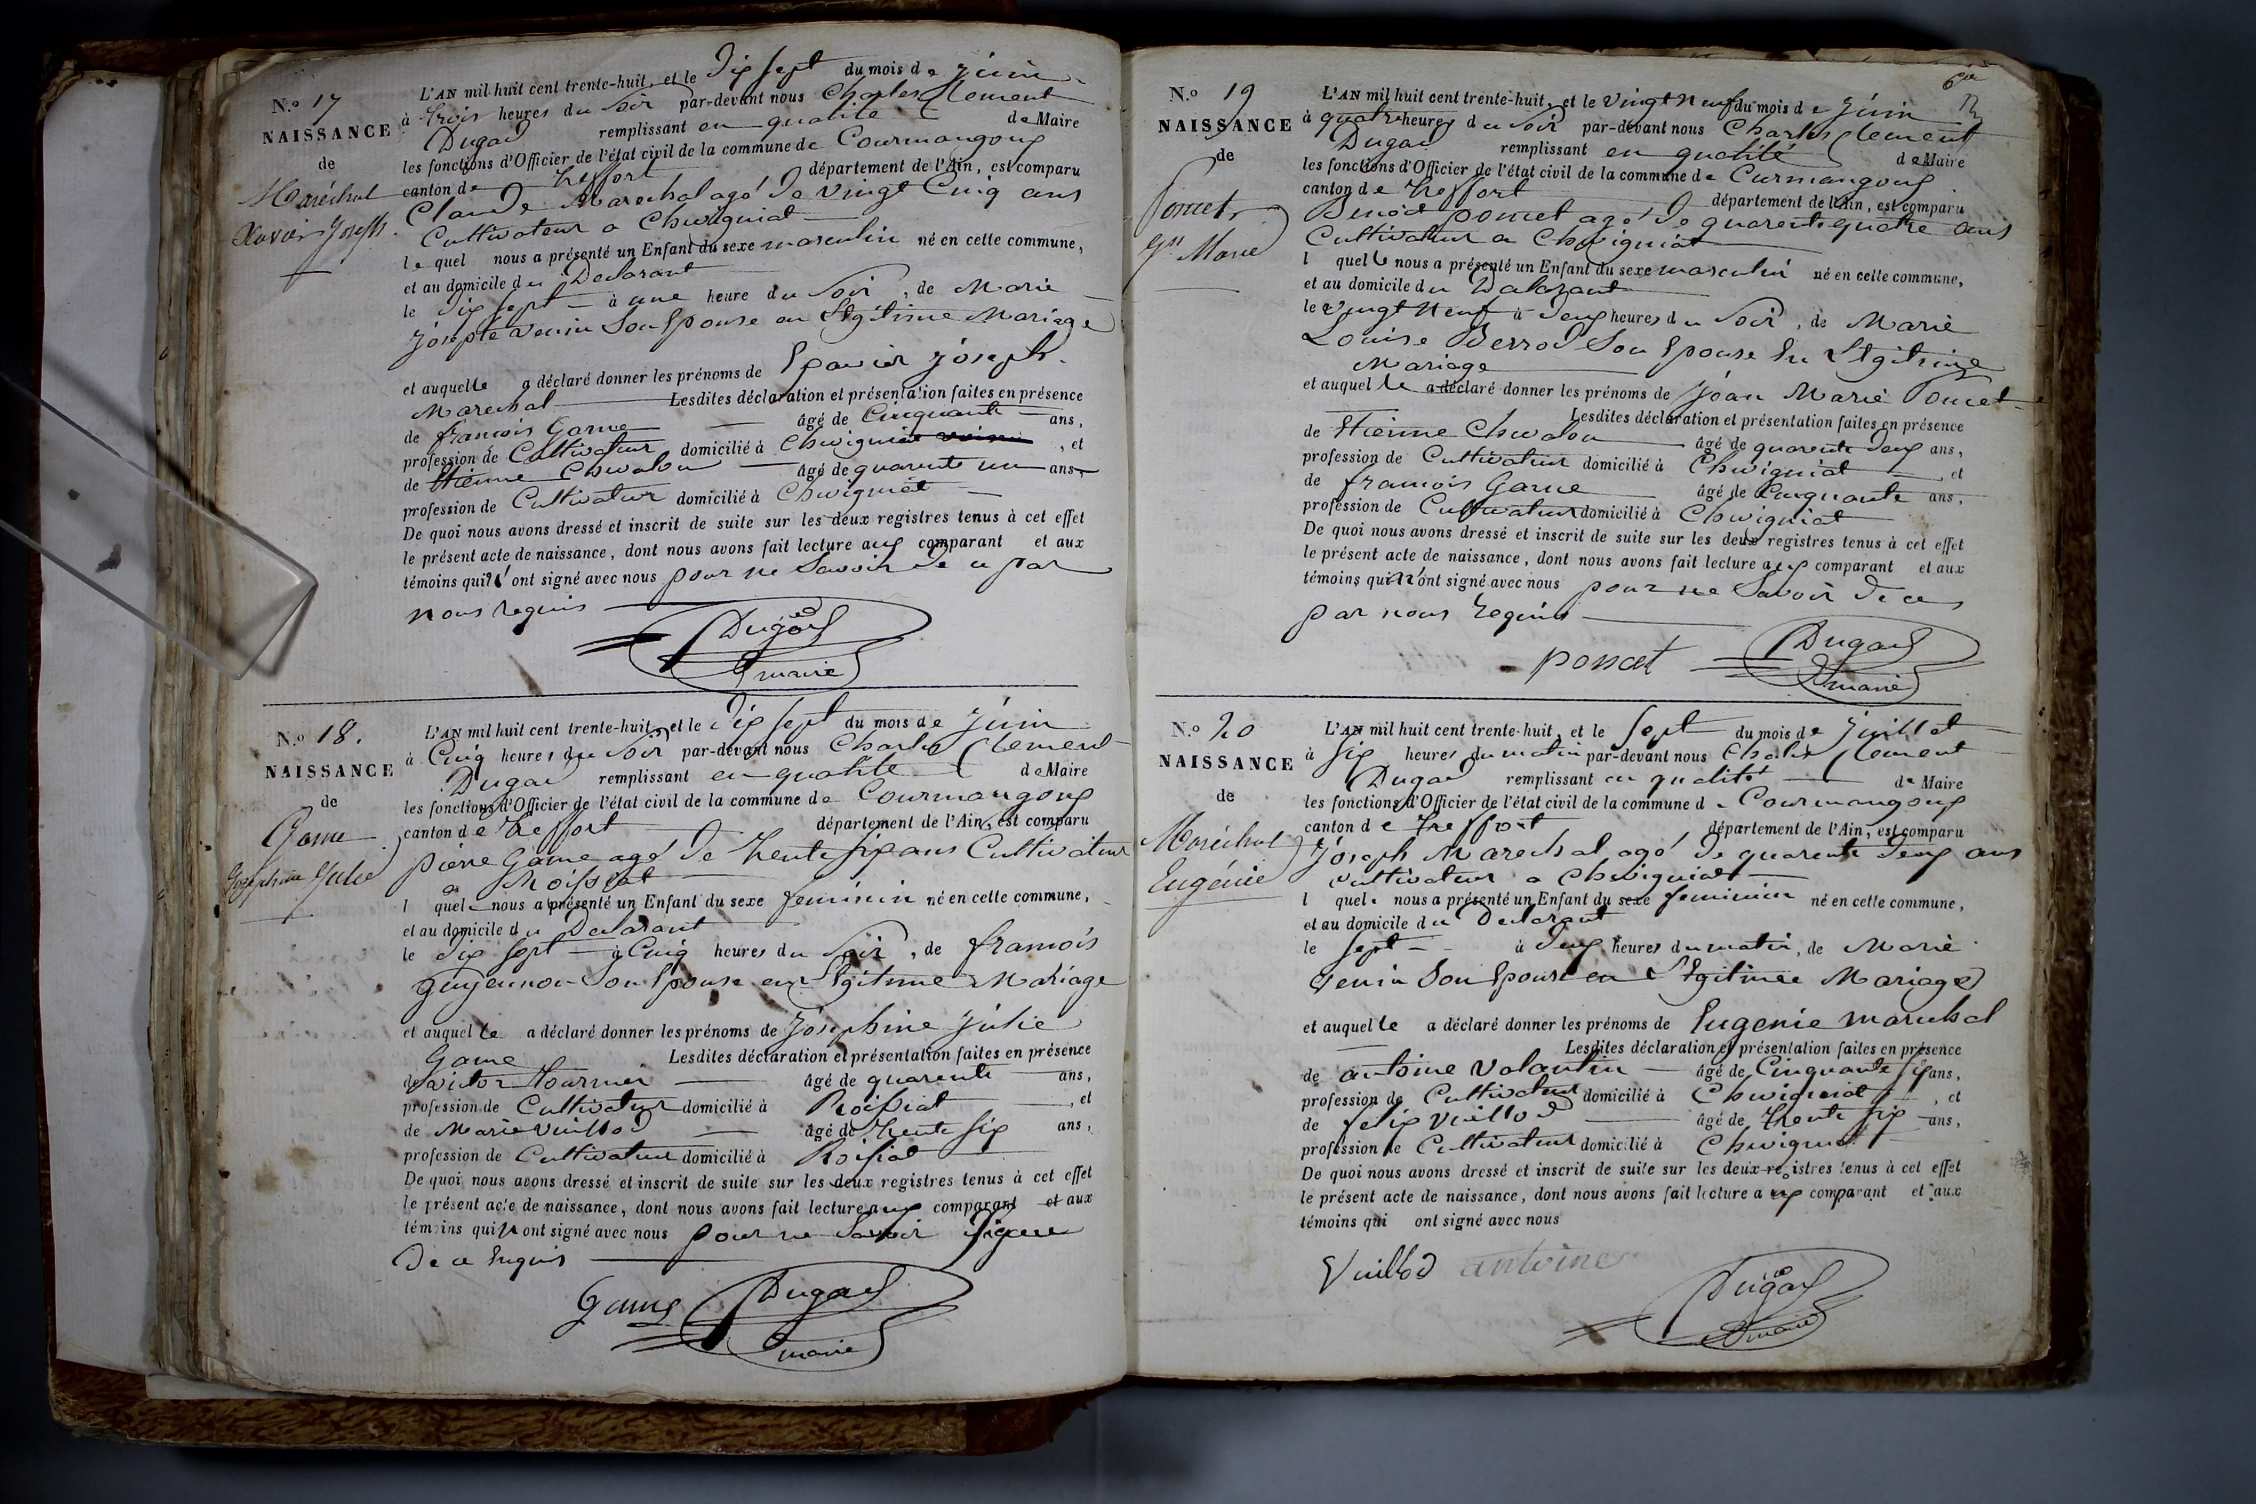 N.o 17
NAISSANCE
de
Maréchal
Xavier Joseph.
L'AN mil huit cent trente-huit, et le Dix sept du mois de juin
à trois heures du soir par-devant nous Charles Clement
Dugad remplissant en qualité de Maire
les fonctions d'Officier de l'état civil de la commune de Courmangoux
canton de treffort département de l'Ain, est comparu
Claude Marechal agé de vingt Cinq ans
Cultivateur a Chevigniat
le quel nous a présenté un Enfant du sexe masculin né en cette commune,
et au domicile du Declarant
le dix sept à une heure du soir, de Marie
josepte venin Son Epouse en Legitime Mariage
et auquel le a déclaré donner les prénoms de Xpavier joseph
Marechal Lesdites déclaration et présentation faites en présence
de francois Game âgé de Cinquante ans,
profession de Cultivateur domicilié à Chevigniat, et
de Etienne Chevalon âgé de quarente un ans
profession de Cultivateur domicilié à Chevigniat
De quoi nous avons dressé et inscrit de suite sur les deux registres tenus à cet effet
le présent acte de naissance, dont nous avons fait lecture aux comparant et aux
témoins qui n'ont signé avec nous pour ne Savoir de ce par
nous requis
Dugad
maire
N.o 18.
NAISSANCE
de
Game
Josephine Julie
L'AN mil huit cent trente-huit, et le Dix sept du mois de juin
à Cinq heures du soir par-devant nous Charles Clement
Dugad remplissant en qualité de Maire
les fonctions d'Officier de l'état civil de la commune de Courmangoux
canton de treffort département de l'Ain, est comparu
pierre Game agé de trente six ans Cultivateur
a Roissiat
l quel nous a présenté un Enfant du sexe feminin né en cette commune,
et au domicile du Declarant
le dix sept à Cinq heures du soir, de francois
guyennon Son Epouse en Legitime Mariage
et auquel le a déclaré donner les prénoms de Josephine Julie
Game Lesdites déclaration et présentation faites en présence
de victor tournier âgé de quarente ans,
profession de Cultivateur domicilié à Roissiat, et
de Marie Vuillod âgé de trente six ans,
profession de Cultivateur domicilié à Roissiat
De quoi nous avons dressé et inscrit de suite sur les deux registres tenus à cet effet
le présent acte de naissance, dont nous avons fait lecture aux comparant et aux
témoins qui n ont signé avec nous pour ne Savoir signer
De ce Enquis
Game Dugad
maire
6e
N.o 19
NAISSANCE
de
Poncet
Marie
L'AN mil huit cent trente-huit, et le vingt neuf du mois de juin
à quatre heures du soir par-devant nous Charles Clement
Dugad remplissant en qualité de Maire
les fonctions d'Officier de l'état civil de la commune de Curmangoux
canton de treffort département de l'Ain, est comparu
Benoit poncet agé de quarente quatre ans
Cultivateur a Chevigniat
l quel le nous a présenté un Enfant du sexe masculin né en cette commune,
et au domicile du Dalarant
le vingt neuf à deux heures du soir, de Marie
Louise Berrod Son Epouse En Legitime
Mariage
et auquel le a déclaré donner les prénoms de Jean Marie Poncet
Lesdites déclaration et présentation faites en présence
de Etienne Chevalon âgé de quarente deux ans,
profession de Cultivateur domicilié à Chevigniat et
de francois Game âgé de Cinquante ans,
profession de Cultivateur domicilié à Chevigniat
De quoi nous avons dressé et inscrit de suite sur les deux registres tenus à cet effet
le présent acte de naissance, dont nous avons fait lecture aux comparant et aux
témoins qui n'ont signé avec nous pour ne Savoir de ce
par nous requis
poncet Dugad
maire
N.o 20
NAISSANCE
de
Maréchal
Eugénie
L'AN mil huit cent trente-huit, et le Sept du mois de juillet
à six heures du matin par-devant nous Charles Clement
Dugad remplissant en qualité de Maire
les fonctions d'Officier de l'état civil de la commune de Courmangoux
canton de treffort département de l'Ain, est comparu
joseph Marechal agé de quarente deux ans
cultivateur a Chevigniat
l quel nous a présenté un Enfant du sexe feminin né en cette commune,
et au domicile du Declarant
le sept à deux heures du matin, de Marie
venin Son Epouse en Legitime Mariage
et auquel le a déclaré donner les prénoms de Eugenie marechal
Lesdites déclaration et présentation faites en présence
de antoine Valantin âgé de Cinquante six ans,
profession de Cultivateur domicilié à Chevigniat, et
de felix Vuillod âgé de trente six ans,
profession de Cultivateur domicilié à Chevigniat
De quoi nous avons dressé et inscrit de suite sur les deux registres tenus à cet effet
le présent acte de naissance, dont nous avons fait lecture aux comparant et aux
témoins qui ont signé avec nous
Vuillod antoine
Dugad
maire